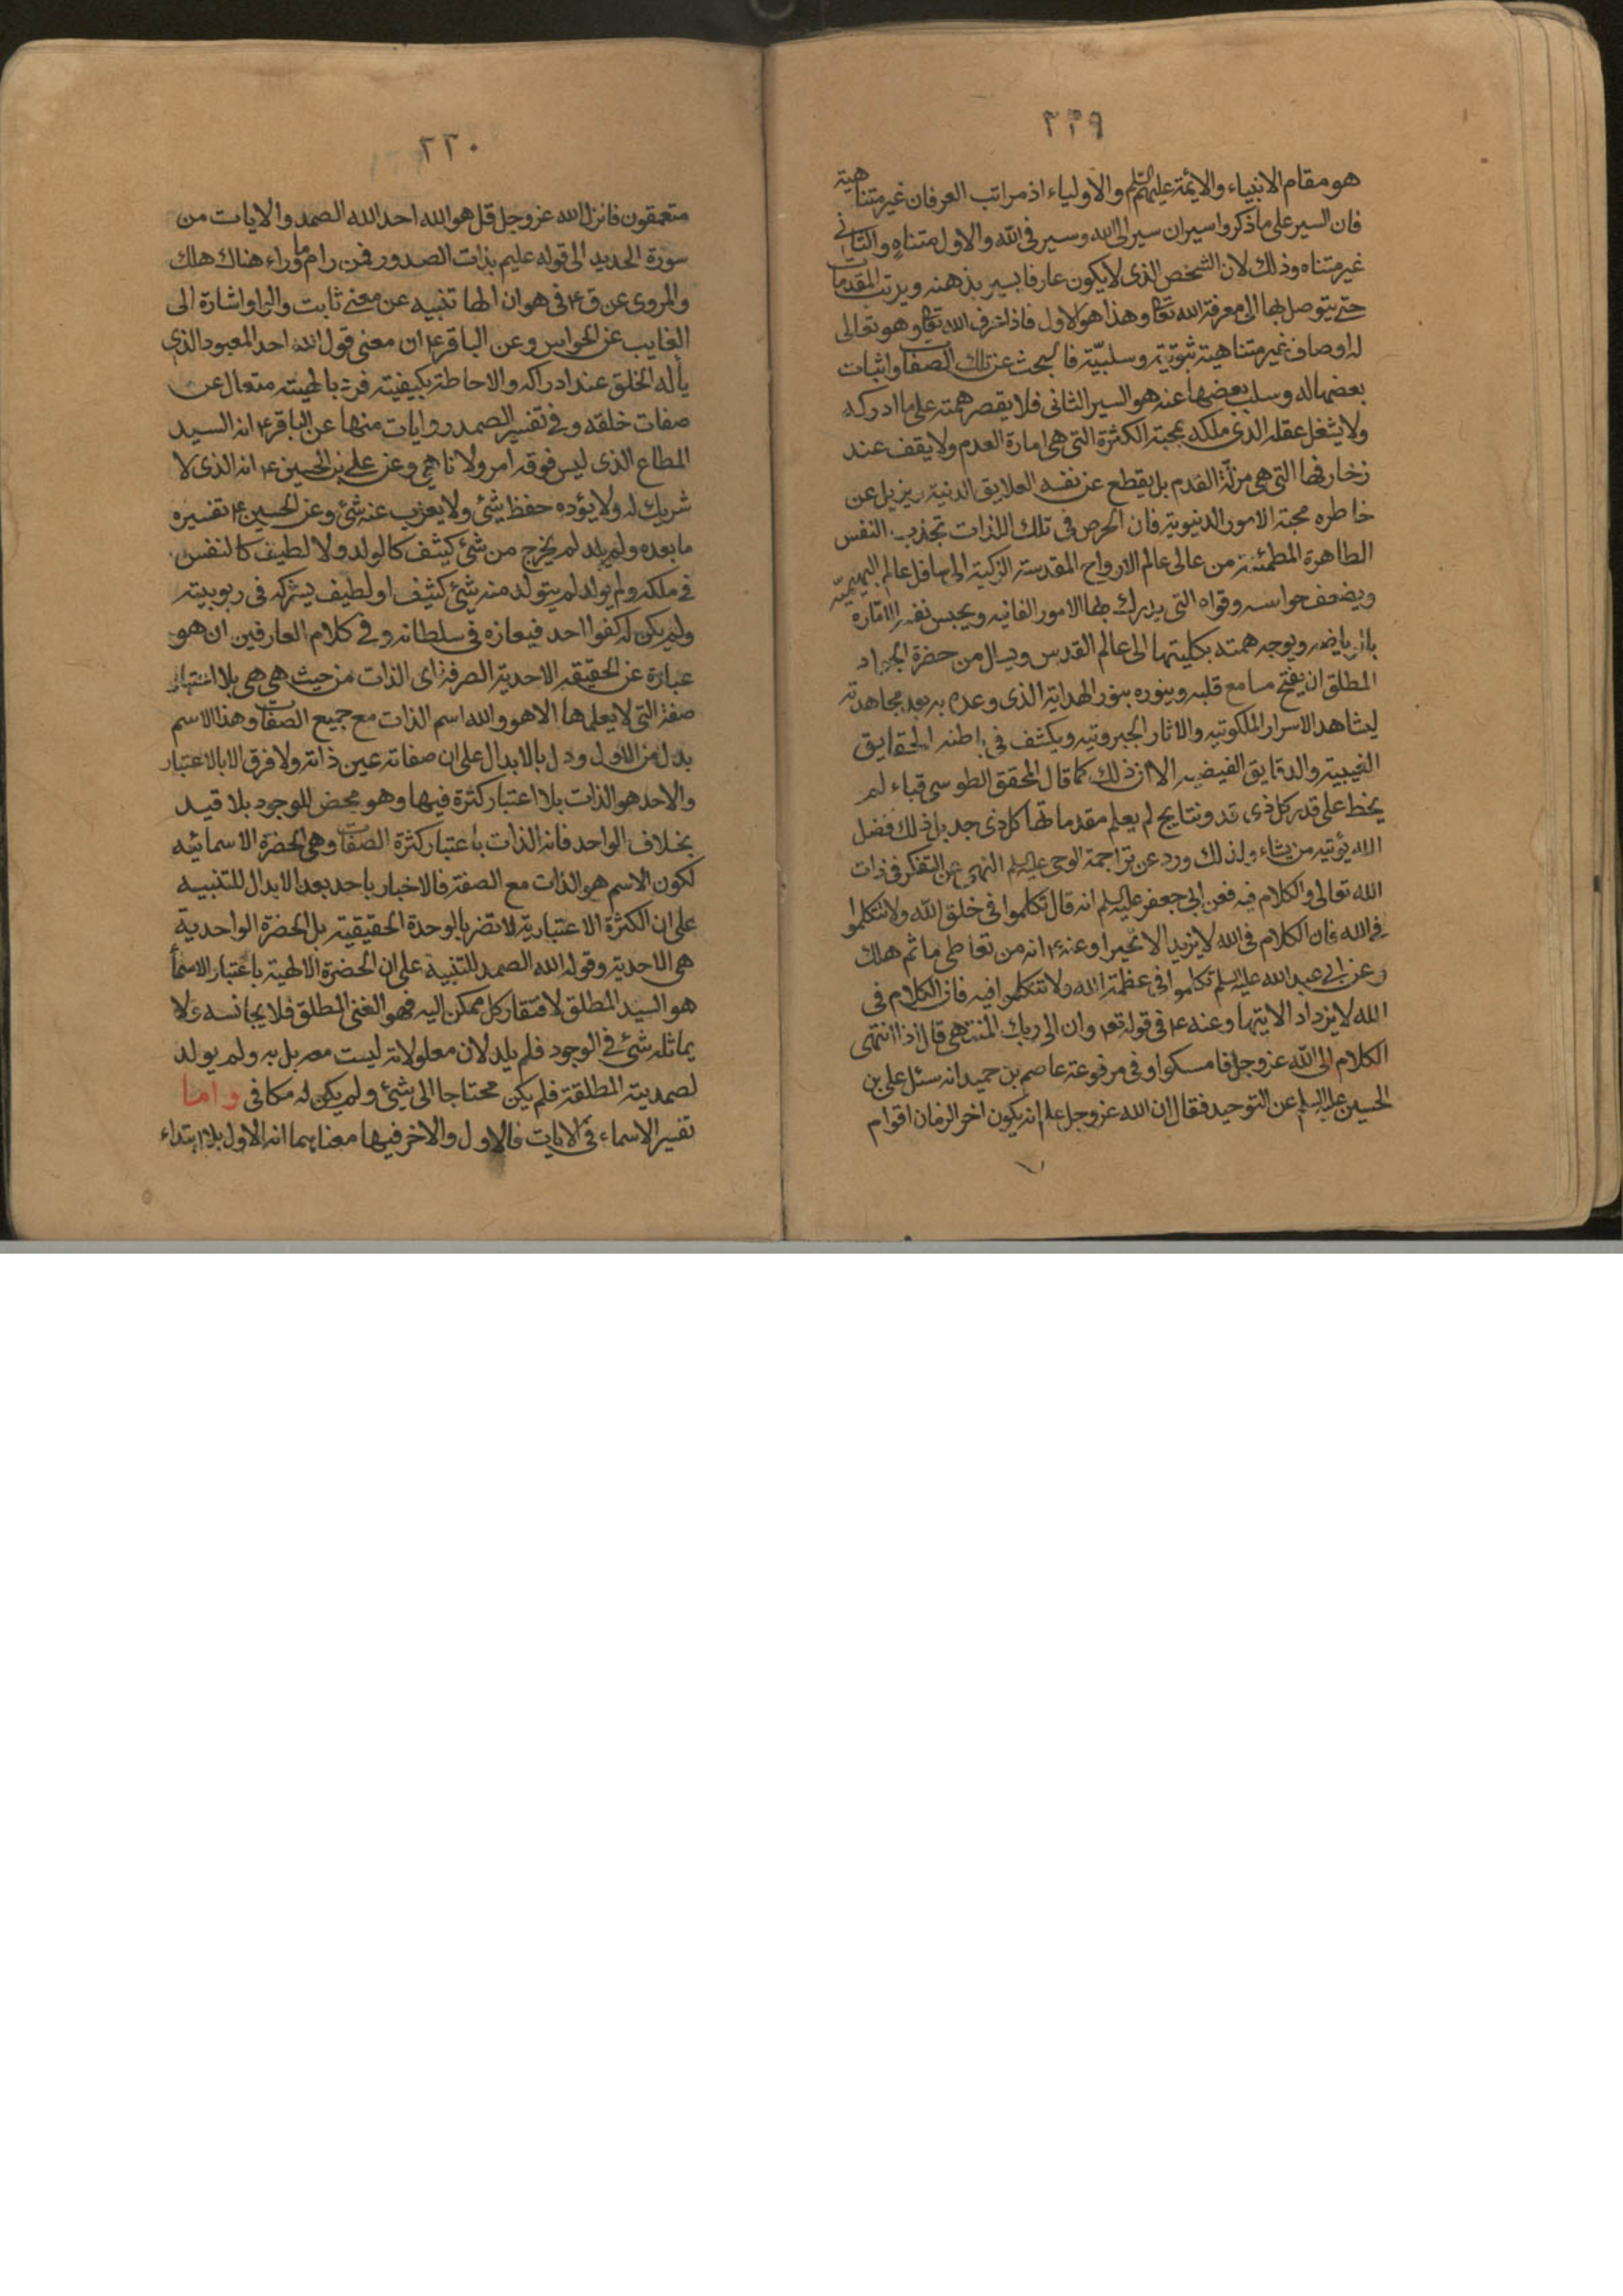 ٢٢٩
هو مقام الانبياء والايمة عليهم السلم والاولياء اذ مراتب العرفان غير متناهية
فان السير على ما ذكروا سيران سير الى الله وسير في الله والاول متناه والثاني
غير متناه وذلك لان الشخص الذى لا يكون عارفا يسير بذهنه ويرتب المقدمات
حتى يتوصل بها الى معرفة الله تعالى وهذا هو الاول فاذا عرف الله تعالى وهو تعالى
له اوصاف غير متناهية ثبوتية وسلبيّة فالبحث عن تلك الصفات واثبات
بعضها له وسلب بعضها عنه هو السير الثانى فلا يقصر همته على ما ادركه
ولا يشغل عقله الذى ملكه بمحبة الكثرة التى هى امارة العدم ولا يقف عند
زخارفها التى هى مزلّة القدم بل يقطع عن نفسه العلايق الدنية ويزيل عن
خاطره محبة الامور الدنيوية فان الحرص فى تلك اللذات تجذب النفس
الطاهرة المطمئنة من عالى عالم الارواح المقدسة الزكية الى سافل عالم البهيميّه
ويضعف حواسه وقواه التى يدرك بها الامور الفانيه ويحبس نفسه الامّاره
بالرياضه ويوجه همته بكليتها الى عالم القدس ويسال من حضرة الجواد
المطلق ان يفتح مسامع قلبه وينوره بنور الهداية الذى وعده به بعد مجاهدته
ليشاهد الاسرار الملكوتيه والاثار الجبروتيه ويكشف فى باطنه الحقايق
الغيبية والدقايق الفيضيه الا ان ذلك كما قال المحقق الطوسى قباء لم
يخط على قدر كل ذى قد ونتايج لم يعلم مقدماتها كل ذى جد بل ذلك فضل
الله يؤتيه من يشاء ولذلك ورد عن تراجمة الوحى عليهم السلم النهى عن التفكر فى ذات
الله تعالى والكلام فيه فعن ابى جعفر عليه السلم انه قال تكلموا فى خلق الله ولا تتكلموا
فى الله فان الكلام فى الله لا يزيد الا تحيرا وعنه ع انه من تعاطى ما ثم هلك
وعن ابى عبد الله عليه السلم تكلموا فى عظمة الله ولا تتكلموا فيه فان الكلام فى
الله لا يزداد الا يتها وعنه ع فى قوله تع وان الى ربك المنتهى قال اذا انتهى
الكلام الى الله عز وجل فامسكوا وفى مرفوعة عاصم بن حميد انه سئل على بن
الحسين عليه السلم عن التوحيد فقال ان الله عز وجل علم انه يكون اخر الزمان اقوام
٢٣٠
متعمقون فانزل الله عز وجل قل هو الله احد الله الصمد والايات من
سورة الحديد الى قوله عليم بذات الصدور فمن رام ما وراء هناك هلك
والمروى عن ق ع فى هو ان الها تنبيه عن معنى ثابت والواو اشارة الى
الغايب عن الحواس وعن الباقر ع ان معنى قول الله احد المعبود الذى
يأله الخلق عند ادراكه والاحاطة بكيفيته فرد بالهيته متعال عن
صفات خلقه وفى تفسير الصمد روايات منها عن الباقر ع انه السيد
المطاع الذى ليس فوقه امر ولا ناهى وعن على بن الحسين ع انه الذى لا
شريك له ولا يؤده حفظ شئ ولا يعزب عنه شئ وعن الحسين ع تفسيره
ما بعده ولم يلد لم يخرج من شئ كيثف كالولد ولا لطيف كالنفس
فى ملكه ولم يولد لم يتولد منه شئ كثيف او لطيف يشركه فى ربوبيته
ولم يكن له كفوا احد فيعازه فى سلطانه وفى كلام العارفين ان هو
عبارة عن الحقيقه الاحدية الصرفة اى الذات من حيث هى هى بلا اعتبار
صفة التى لا يعلمها الا هو والله اسم الذات مع جميع الصفات وهذا الاسم
بدل من الاول ودل بالابدال على ان صفاته عين ذاته ولا فرق الا بالاعتبار
والاحد هو الذات بلا اعتبار كثرة فيها وهو محض للوجود بلا قيد
بخلاف الواحد فانه الذات باعتبار كثرة الصفات وهى الحضرة الاسمائيه
لكون الاسم هو الذات مع الصفة فالاخبار باحد بعد الابدال للتنبيه
على ان الكثرة الاعتبارية لا تضر بالوحدة الحقيقية بل الحضرة الواحدية
هى الاحدية وقوله الله الصمد للتنبيه على ان الحضرة الالهية باعتبار الاسمأ
هو السيد المطلق لافتقار كل ممكن اليه فهو الغنى المطلق فلا يجانسه ولا
يماثله شئ فى الوجود فلم يلد لان معلولاته ليست معه بل به ولم يولد
لصمديته المطلقة فلم يكن محتاجا الى شئ ولم يكن له مكافى واما
تفسير الاسماء فى الايات فالاول والاخر فيها معناهما انه الاول بلا ابتداء